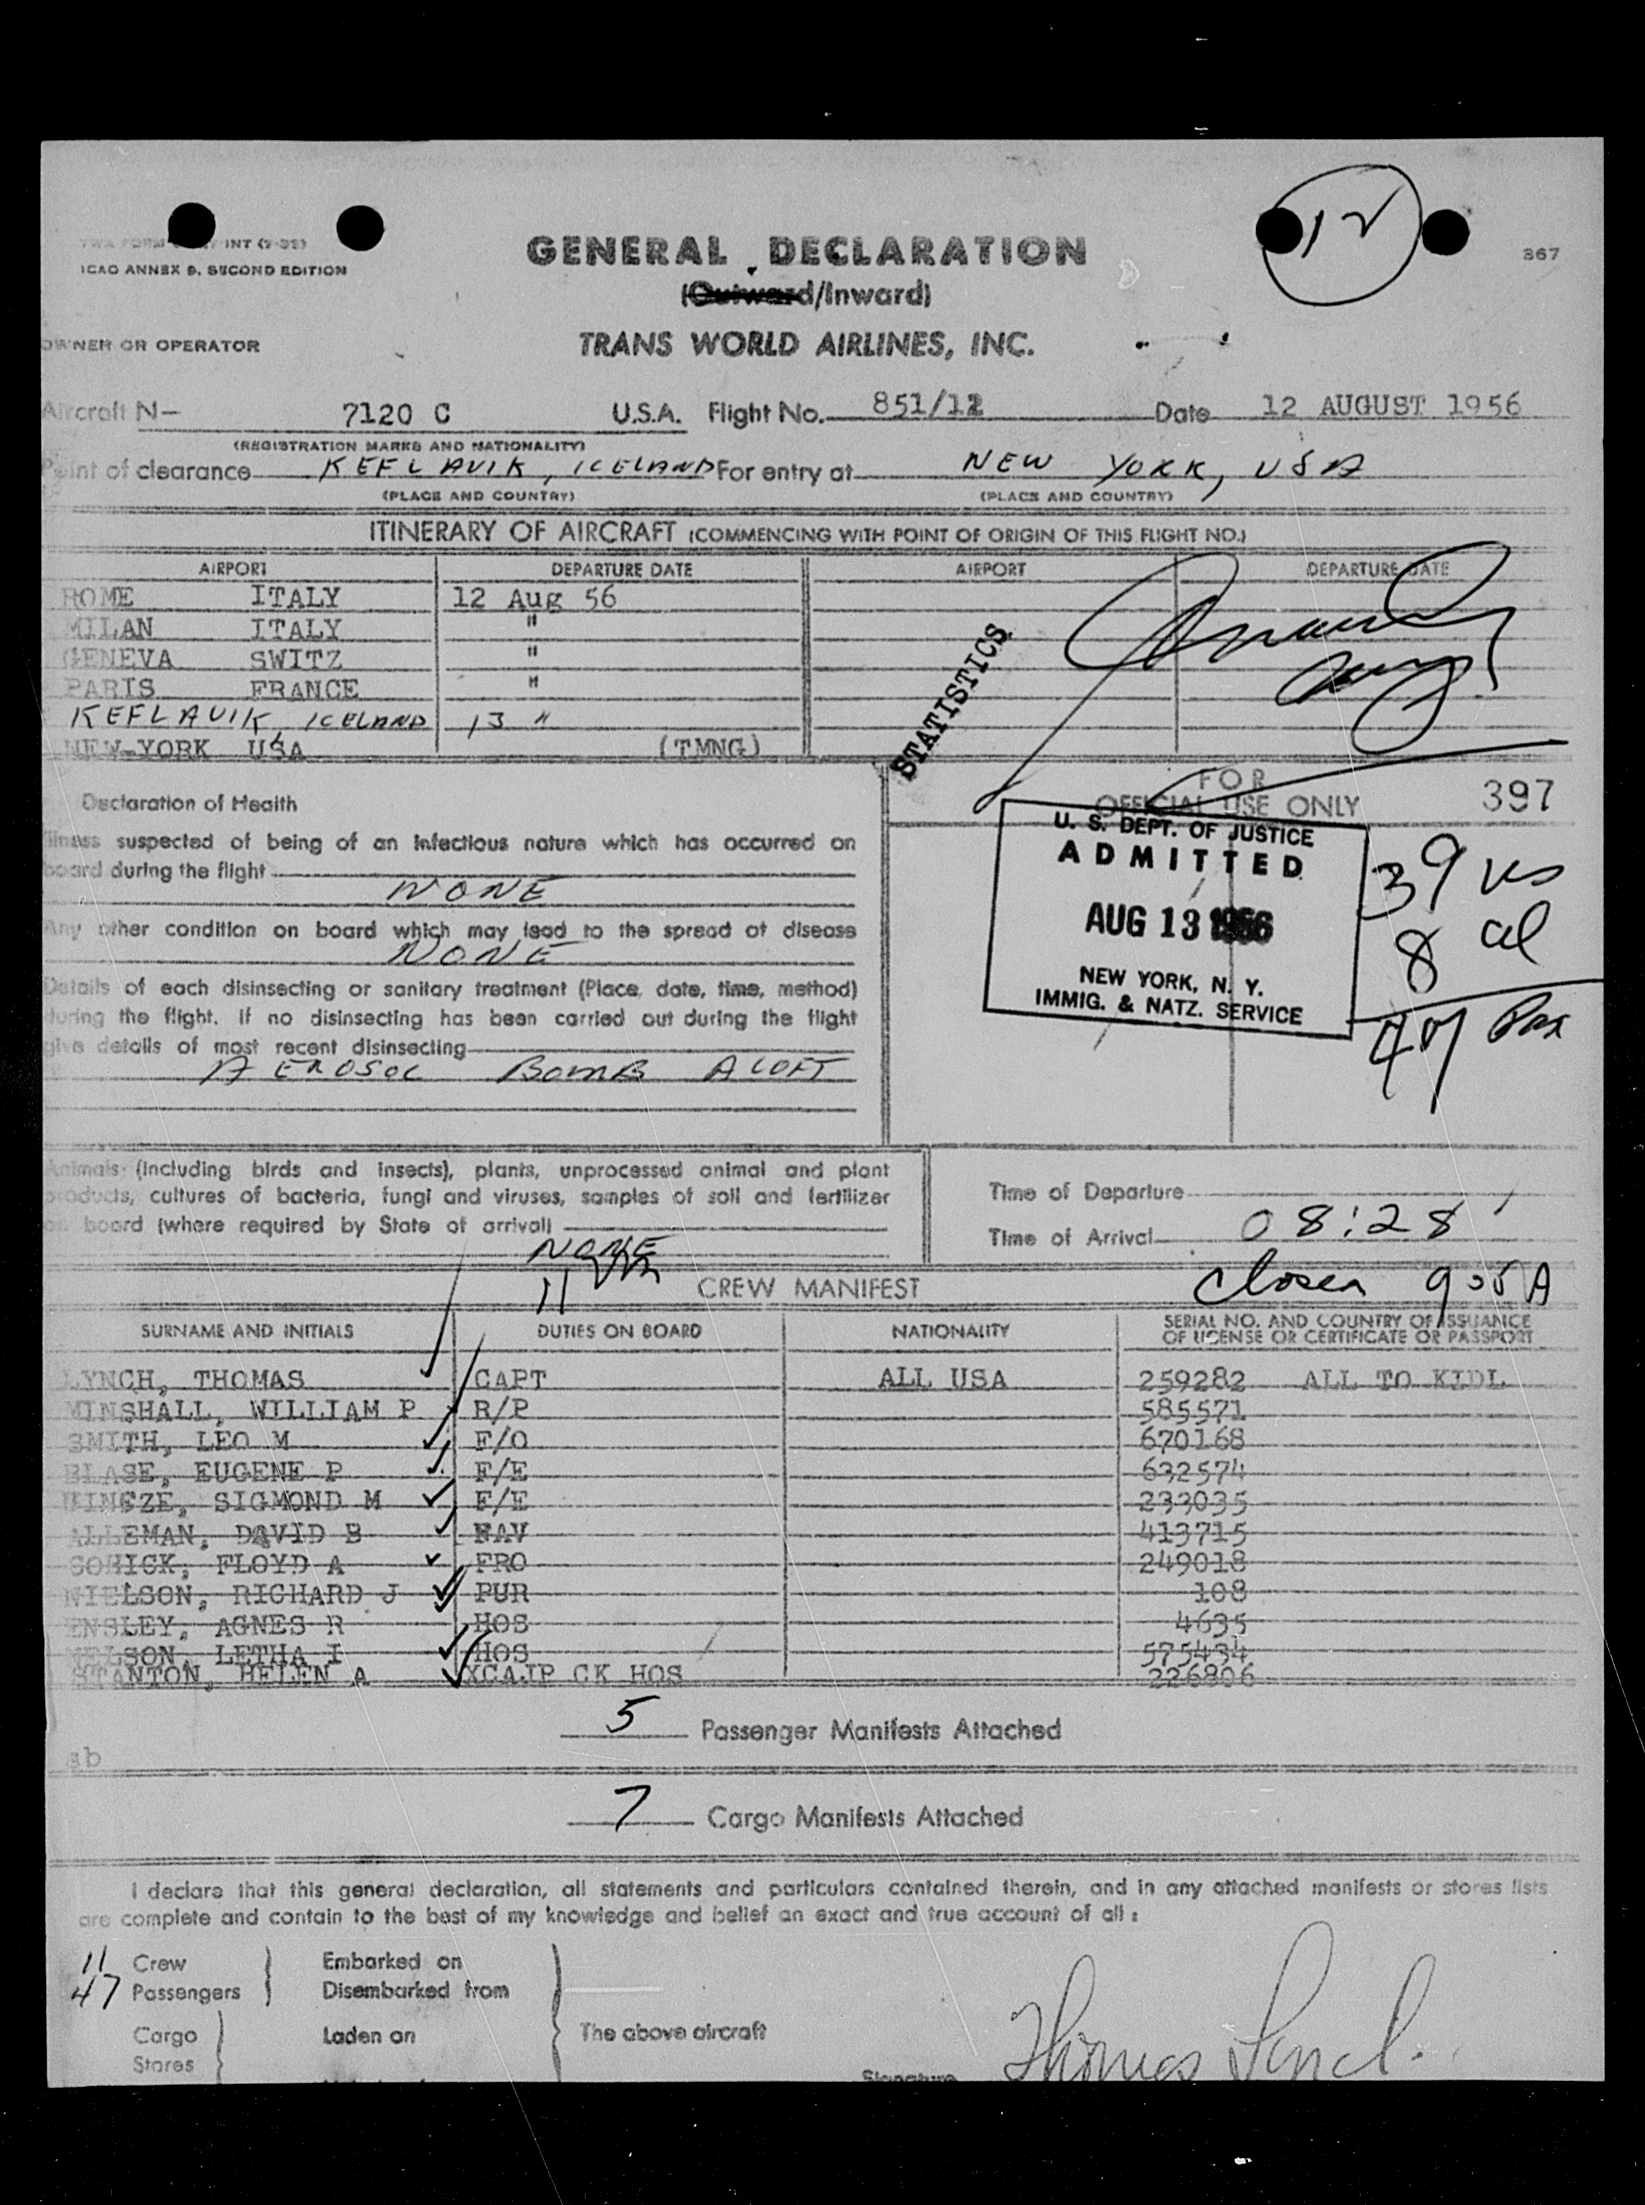 12
INT (7-55)
ICAO ANNEX 9, SECOND EDITION
GENERAL DECLARATION
(Outward/Inward)
367
OWNER OR OPERATOR
TRANS WORLD AIRLINES, INC.
Aircraft N- 7120 C U.S.A. Flight No. 851/12 Date 12 AUGUST 1956
(REGISTRATION MARKS AND NATIONALITY)
Point of clearance KEFLAVIK, ICELAND For entry at NEW YORK, USA
(PLACE AND COUNTRY) (PLACE AND COUNTRY)
ITINERARY OF AIRCRAFT (COMMENCING WITH POINT OF ORIGIN OF THIS FLIGHT NO.)
AIRPORT DEPARTURE DATE AIRPORT DEPARTURE DATE
ROME ITALY 12 Aug 56
MILAN ITALY "
GENEVA SWITZ "
PARIS FRANCE "
KEFLAVIK ICELAND 13 "
NEW-YORK USA (TMNG)
STATISTICS
FOR
OFFICIAL USE ONLY 397
Declaration of Health
Illness suspected of being of an infectious nature which has occurred on
board during the flight
NONE
Any other condition on board which may lead to the spread of disease
NONE
Details of each disinsecting or sanitary treatment (Place, date, time, method)
during the flight. If no disinsecting has been carried out during the flight
give details of most recent disinsecting
AEROSOL BOMB ALOFT
U. S. DEPT. OF JUSTICE
ADMITTED
AUG 13 1956
NEW YORK, N. Y.
IMMIG. & NATZ. SERVICE
39 us
8 al
47 Pax
Animals (including birds and insects), plants, unprocessed animal and plant
products, cultures of bacteria, fungi and viruses, samples of soil and fertilizer
on board (where required by State of arrival)
NONE
Time of Departure
Time of Arrival 08:28
11
CREW MANIFEST
Closed 905A
SURNAME AND INITIALS DUTIES ON BOARD NATIONALITY SERIAL NO. AND COUNTRY OF ISSUANCE
OF LICENSE OR CERTIFICATE OR PASSPORT
LYNCH, THOMAS CAPT ALL USA 259282 ALL TO KIDL
MINSHALL, WILLIAM P R/P 585571
SMITH, LEO M F/O 670168
BLASE, EUGENE P F/E 632574
SIGMOND M F/E 233035
ALLEMAN, DAVID B NAV 413715
FLOYD A FRO 249018
NIELSON, RICHARD J PUR 108
ENSLEY, AGNES R HOS 4635
NELSON, LETHA I HOS 575434
STANTON, HELEN A XCAJP CK HOS 226806
5 Passenger Manifests Attached
sb
7 Cargo Manifests Attached
I declare that this general declaration, all statements and particulars contained therein, and in any attached manifests or stores lists
are complete and contain to the best of my knowledge and belief an exact and true account of all :
11 Crew Embarked on
47 Passengers Disembarked from
Cargo Laden on The above aircraft
Stores
Signature Thomas Lynch